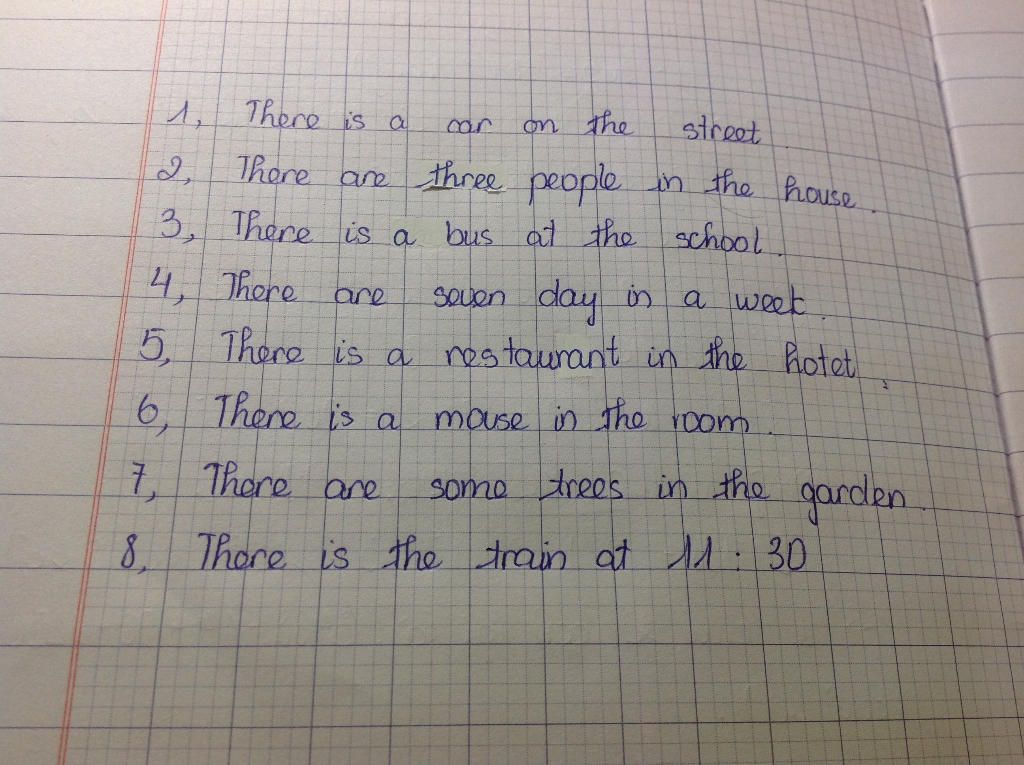 1, There is a car on the street
2, There are three people in the house.
3, There is a bus at the school.
4, There are seven day in a week.
5, There is a restaurant in the hotel.
6, There is a mouse in the room.
7, There are some trees in the garden.
8, There is the train at 11:30